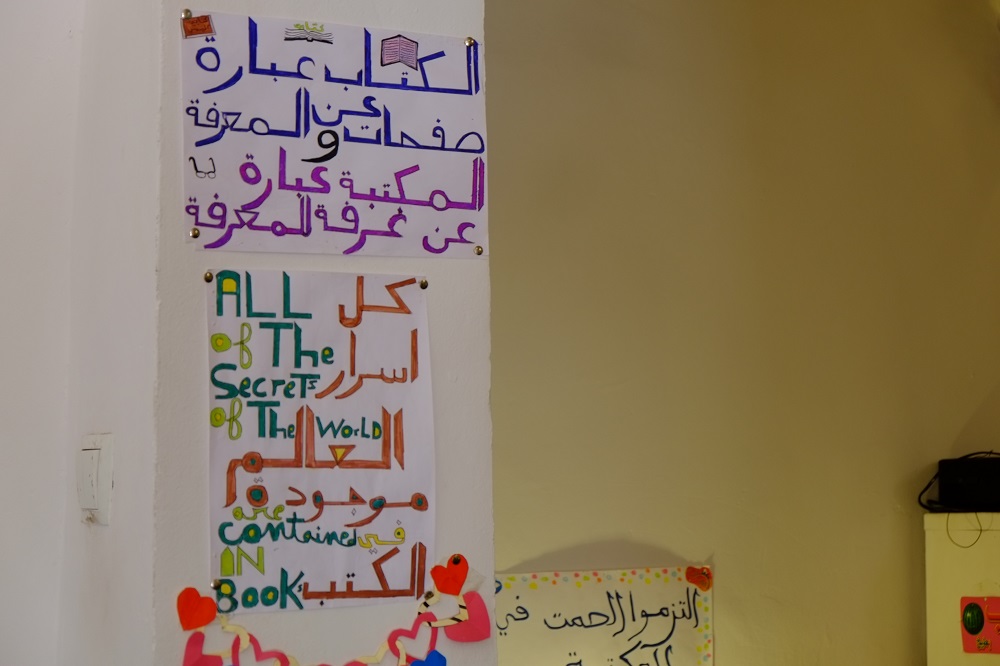 الكتاب عبارة
عن
صفحات و المعرفة
المكتبة عبارة
عن غرفة للمعرفة
ALL كل
of The
Secrets اسرار
of The World
العالم
موجودة
are
contained في
IN
Books الكتب
التزموا الصمت في
المكتبة